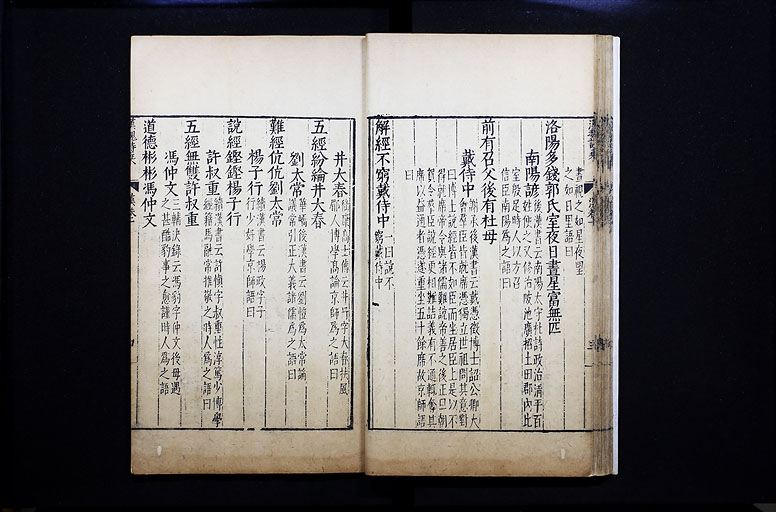 晝視之如星夜望
之如日里語曰
洛陽多錢郭氏室夜日晝星富無匹
南陽諺
後漢書云南陽太守杜詩政治清平百
姓便之又修治陂池廣拓土田郡內比
室殷足時人以方召
信臣南陽為之語曰
前有召父後有杜母
戴侍中
謝承後漢書云戴憑徵博士詔公卿大
會羣臣皆就席憑獨立世祖問其意對
曰博士說經皆不如臣而坐居臣上是以不
得就席帝令與諸儒難說帝善之後正旦朝
賀令羣臣說經更相難詰義有不通輒奪其
席以益通者憑遂重坐五十餘席故京師語
曰
解經不窮戴侍中
一曰說不
窮戴侍中
井大春
云井丹字大春扶風
郿人博學高論京師為之語曰
五經紛綸井大春
劉太常
華嶠後漢書云劉愷為太常論
議常引正大義諸儒為之語曰
難經伉伉劉太常
楊子行
續漢書云楊政字子
行少好學京師語曰
說經鏗鏗楊子行
許叔重
續漢書云許慎字叔重性淳篤少博學
經籍馬融常推敬之時人為之語曰
五經無雙許叔重
馮仲文
三輔決錄云馮豹字仲文後母遇
之甚酷豹事之愈謹時人為之語
道德彬彬馮仲文